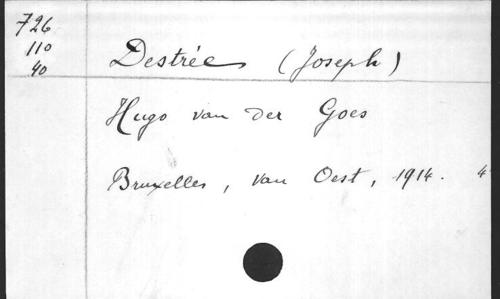 726
110
40
Destrée (Joseph)
Hugo van der Goes
Bruxelles, van Oest, 1914. 4